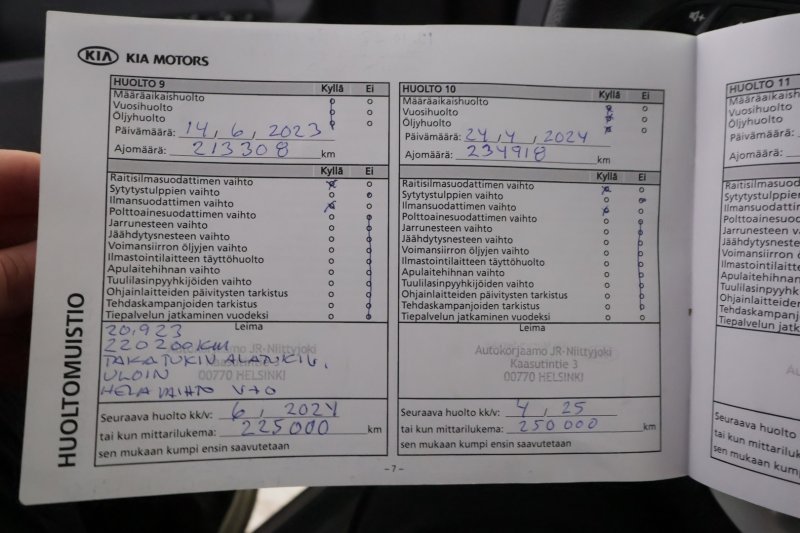 KIA KIA MOTORS
HUOLTOMUISTIO
HUOLTO 9 Kyllä Ei
Määräaikaishuolto
Vuosihuolto
Öljyhuolto
Päivämäärä: 14, 6, 2023
Ajomäärä: 213308 km
Kyllä Ei
Raitisilmasuodattimen vaihto
Sytytystulppien vaihto
Ilmansuodattimen vaihto
Polttoainesuodattimen vaihto
Jarrunesteen vaihto
Jäähdytysnesteen vaihto
Voimansiirron öljyjen vaihto
Ilmastointilaitteen täyttöhuolto
Apulaitehihnan vaihto
Tuulilasinpyyhkijöiden vaihto
Ohjainlaitteiden päivitysten tarkistus
Tehdaskampanjoiden tarkistus
Tiepalvelun jatkaminen vuodeksi
Leima
20,923
220200KM
TAKATUKIN ALATUKIN,
ULOIN
HELA VAIHTO V+O
Seuraava huolto kk/v: 6, 2024
tai kun mittarilukema: 225000 km
sen mukaan kumpi ensin saavutetaan
HUOLTO 10 Kyllä Ei
Määräaikaishuolto
Vuosihuolto
Öljyhuolto
Päivämäärä: 24,4, 2024
Ajomäärä: 234918 km
Kyllä Ei
Raitisilmasuodattimen vaihto
Sytytystulppien vaihto
Ilmansuodattimen vaihto
Polttoainesuodattimen vaihto
Jarrunesteen vaihto
Jäähdytysnesteen vaihto
Voimansiirron öljyjen vaihto
Ilmastointilaitteen täyttöhuolto
Apulaitehihnan vaihto
Tuulilasinpyyhkijöiden vaihto
Ohjainlaitteiden päivitysten tarkistus
Tehdaskampanjoiden tarkistus
Tiepalvelun jatkaminen vuodeksi
Leima
Autokorjaamo JR-Niittyjoki
Kaasutintie 3
00770 HELSINKI
Seuraava huolto kk/v: 4, 25
tai kun mittarilukema: 250 000 km
sen mukaan kumpi ensin saavutetaan
-7-
HUOLTO 11
Määräaikaishuolto
Vuosihuolto
Öljyhuolto
Päivämäärä:
Ajomäärä:
Raitisilmasuodattimen
Sytytystulppien
Ilmansuodattimen
Seuraava huolto
tai kun mittarilukema
sen mukaan kumpi